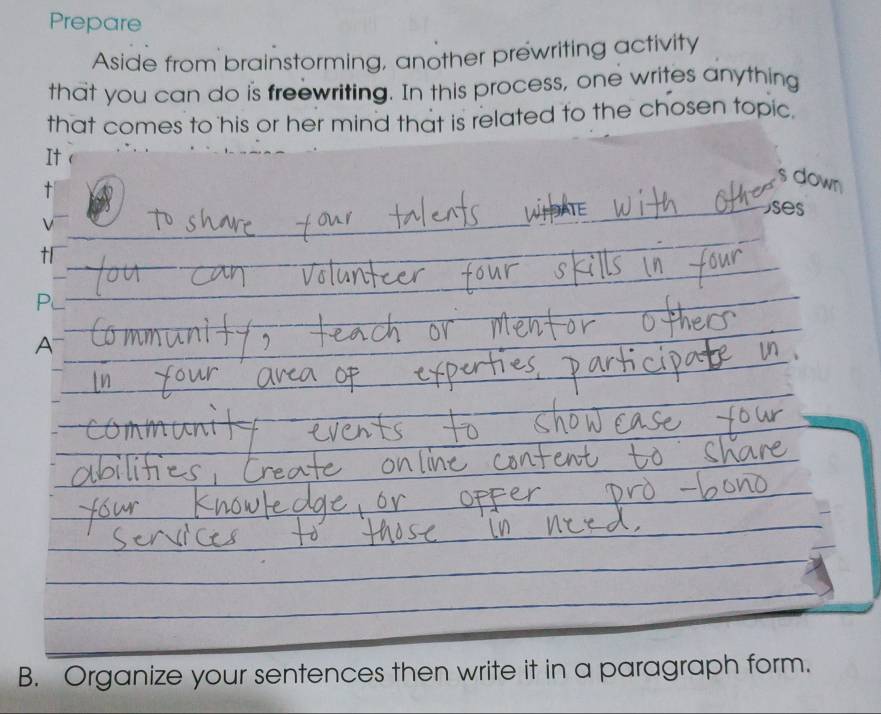 Prepare
Aside from brainstorming, another prewriting activity
that you can do is freewriting. In this process, one writes anything
that comes to his or her mind that is related to the chosen topic.
It
s down
To share your talents with others
You can volunteer your skills in your
Community, teach or mentor others
in your area of experties, participate in
community events to showcase your
abilities, Create online content to share
your knowledge, or offer pro-bono
services to those in need.
B. Organize your sentences then write it in a paragraph form.